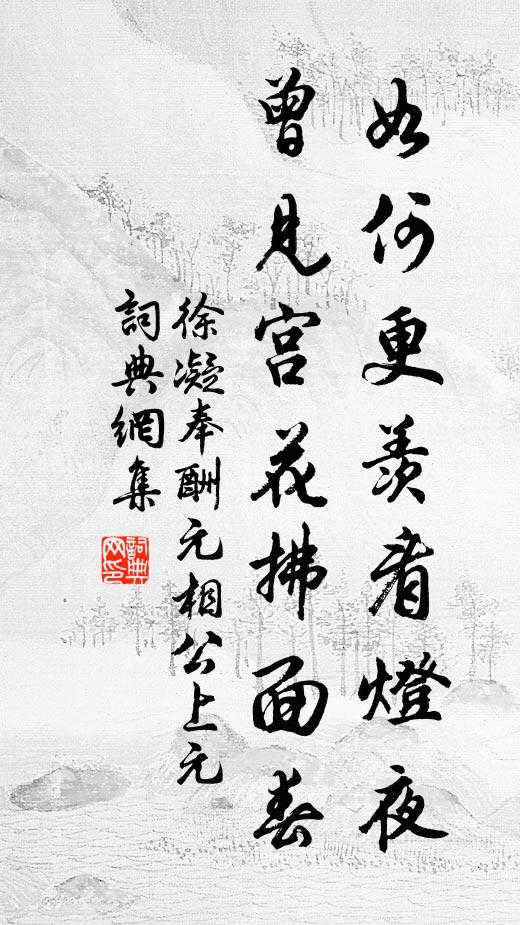 如何更羨看燈夜
曾見宮花拂面春
徐凝奉酬元相公上元
詞典網集
詞典
网印